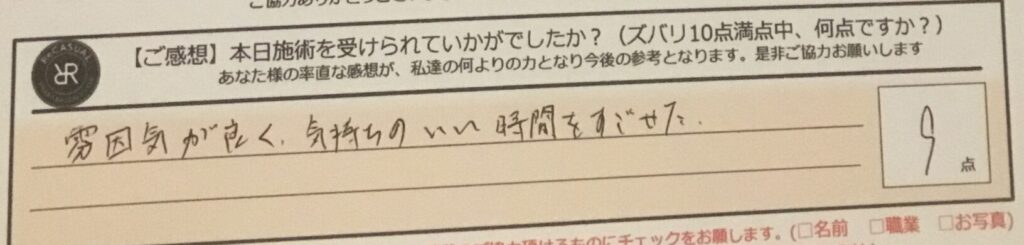 【ご感想】本日施術を受けられていかがでしたか？（ズバリ10点満点中、何点ですか？）
あなた様の率直な感想が、私達の何よりの力となり今後の参考となります。是非ご協力お願いします
雰因気が良く、気持ちのいい時間をすごせた.
9
点
のにチェックをお願します。(□名前 □職業 □お写真)